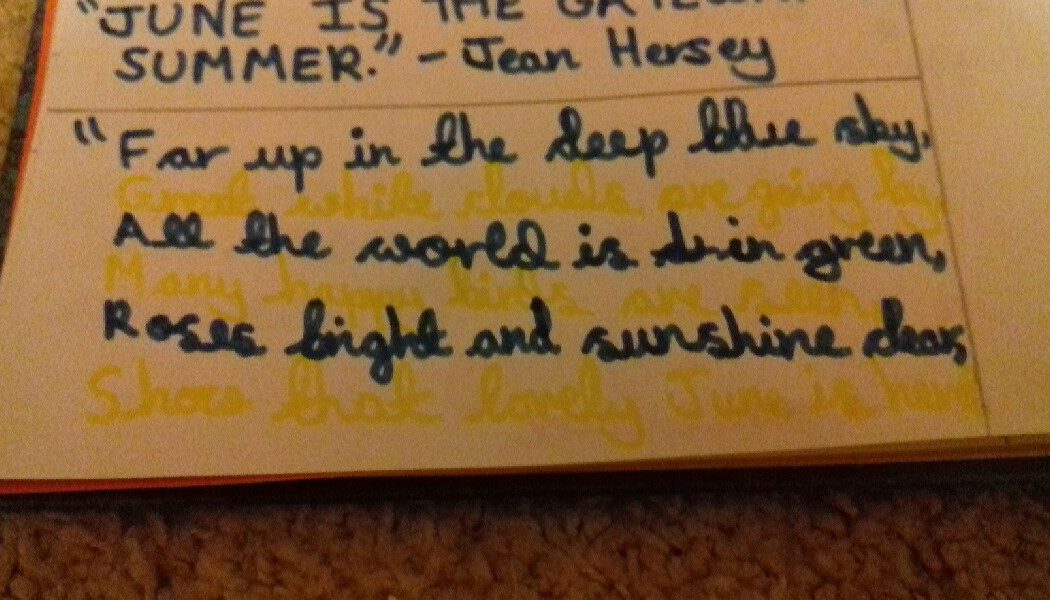 "JUNE IS THE GATEWAY
SUMMER." - Jean Hersey
"Far up in the deep blue sky,
Great white clouds are going by
All the world is in green,
Many happy birds are seen,
Roses bright and sunshine clear,
Shows that lovely June is here